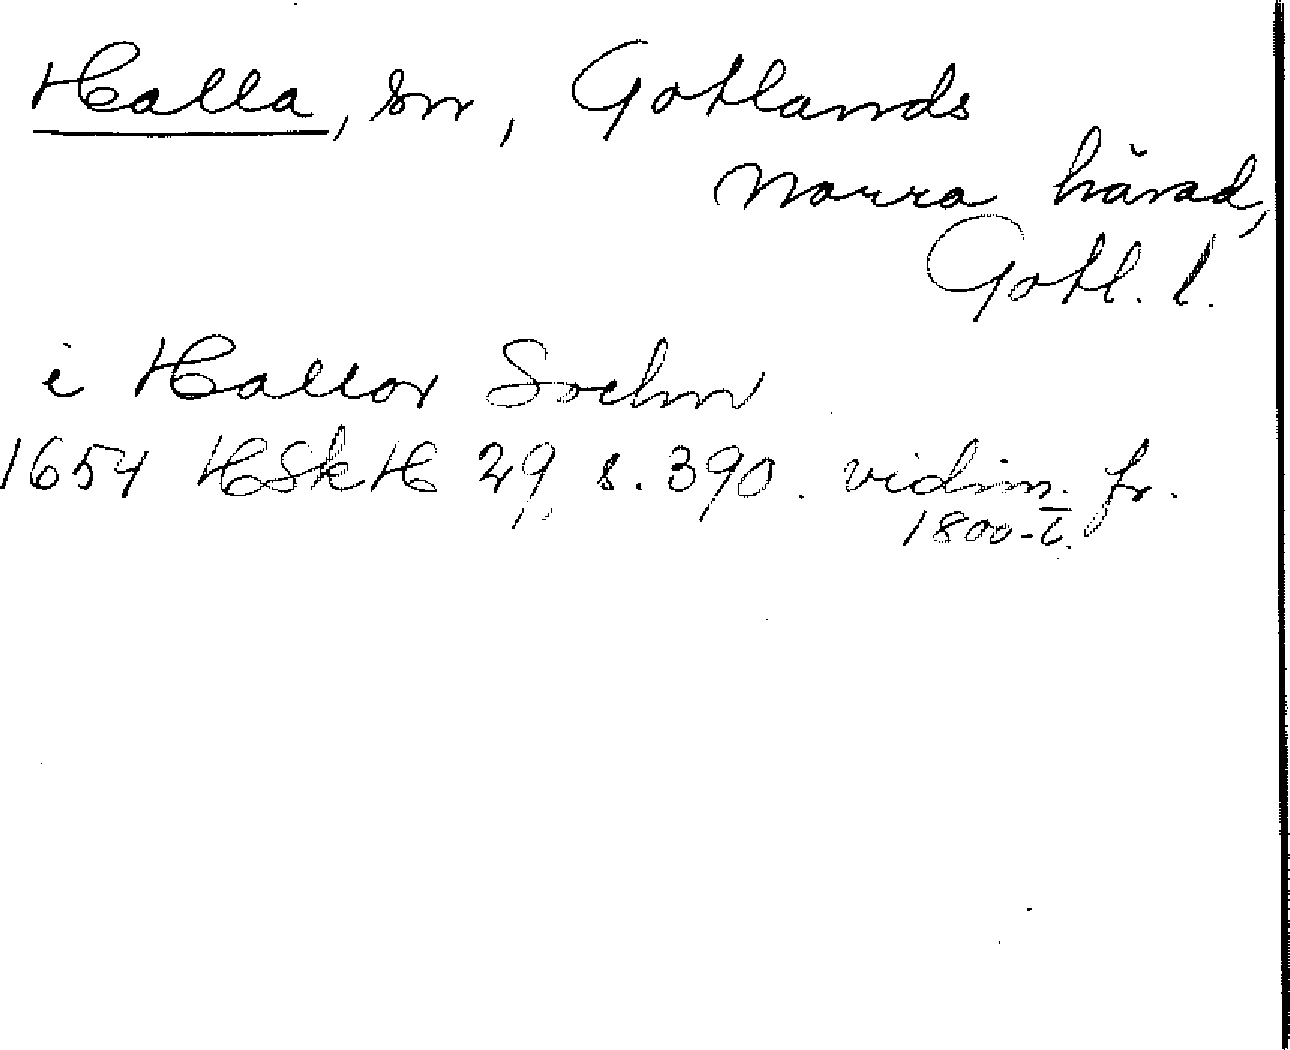 Halla, sn, Gotlands
norra härad,
Gotl. l.
i Hallor Sochn
1654 HSkH 29, s. 390. vidim. fr.
1800-t.